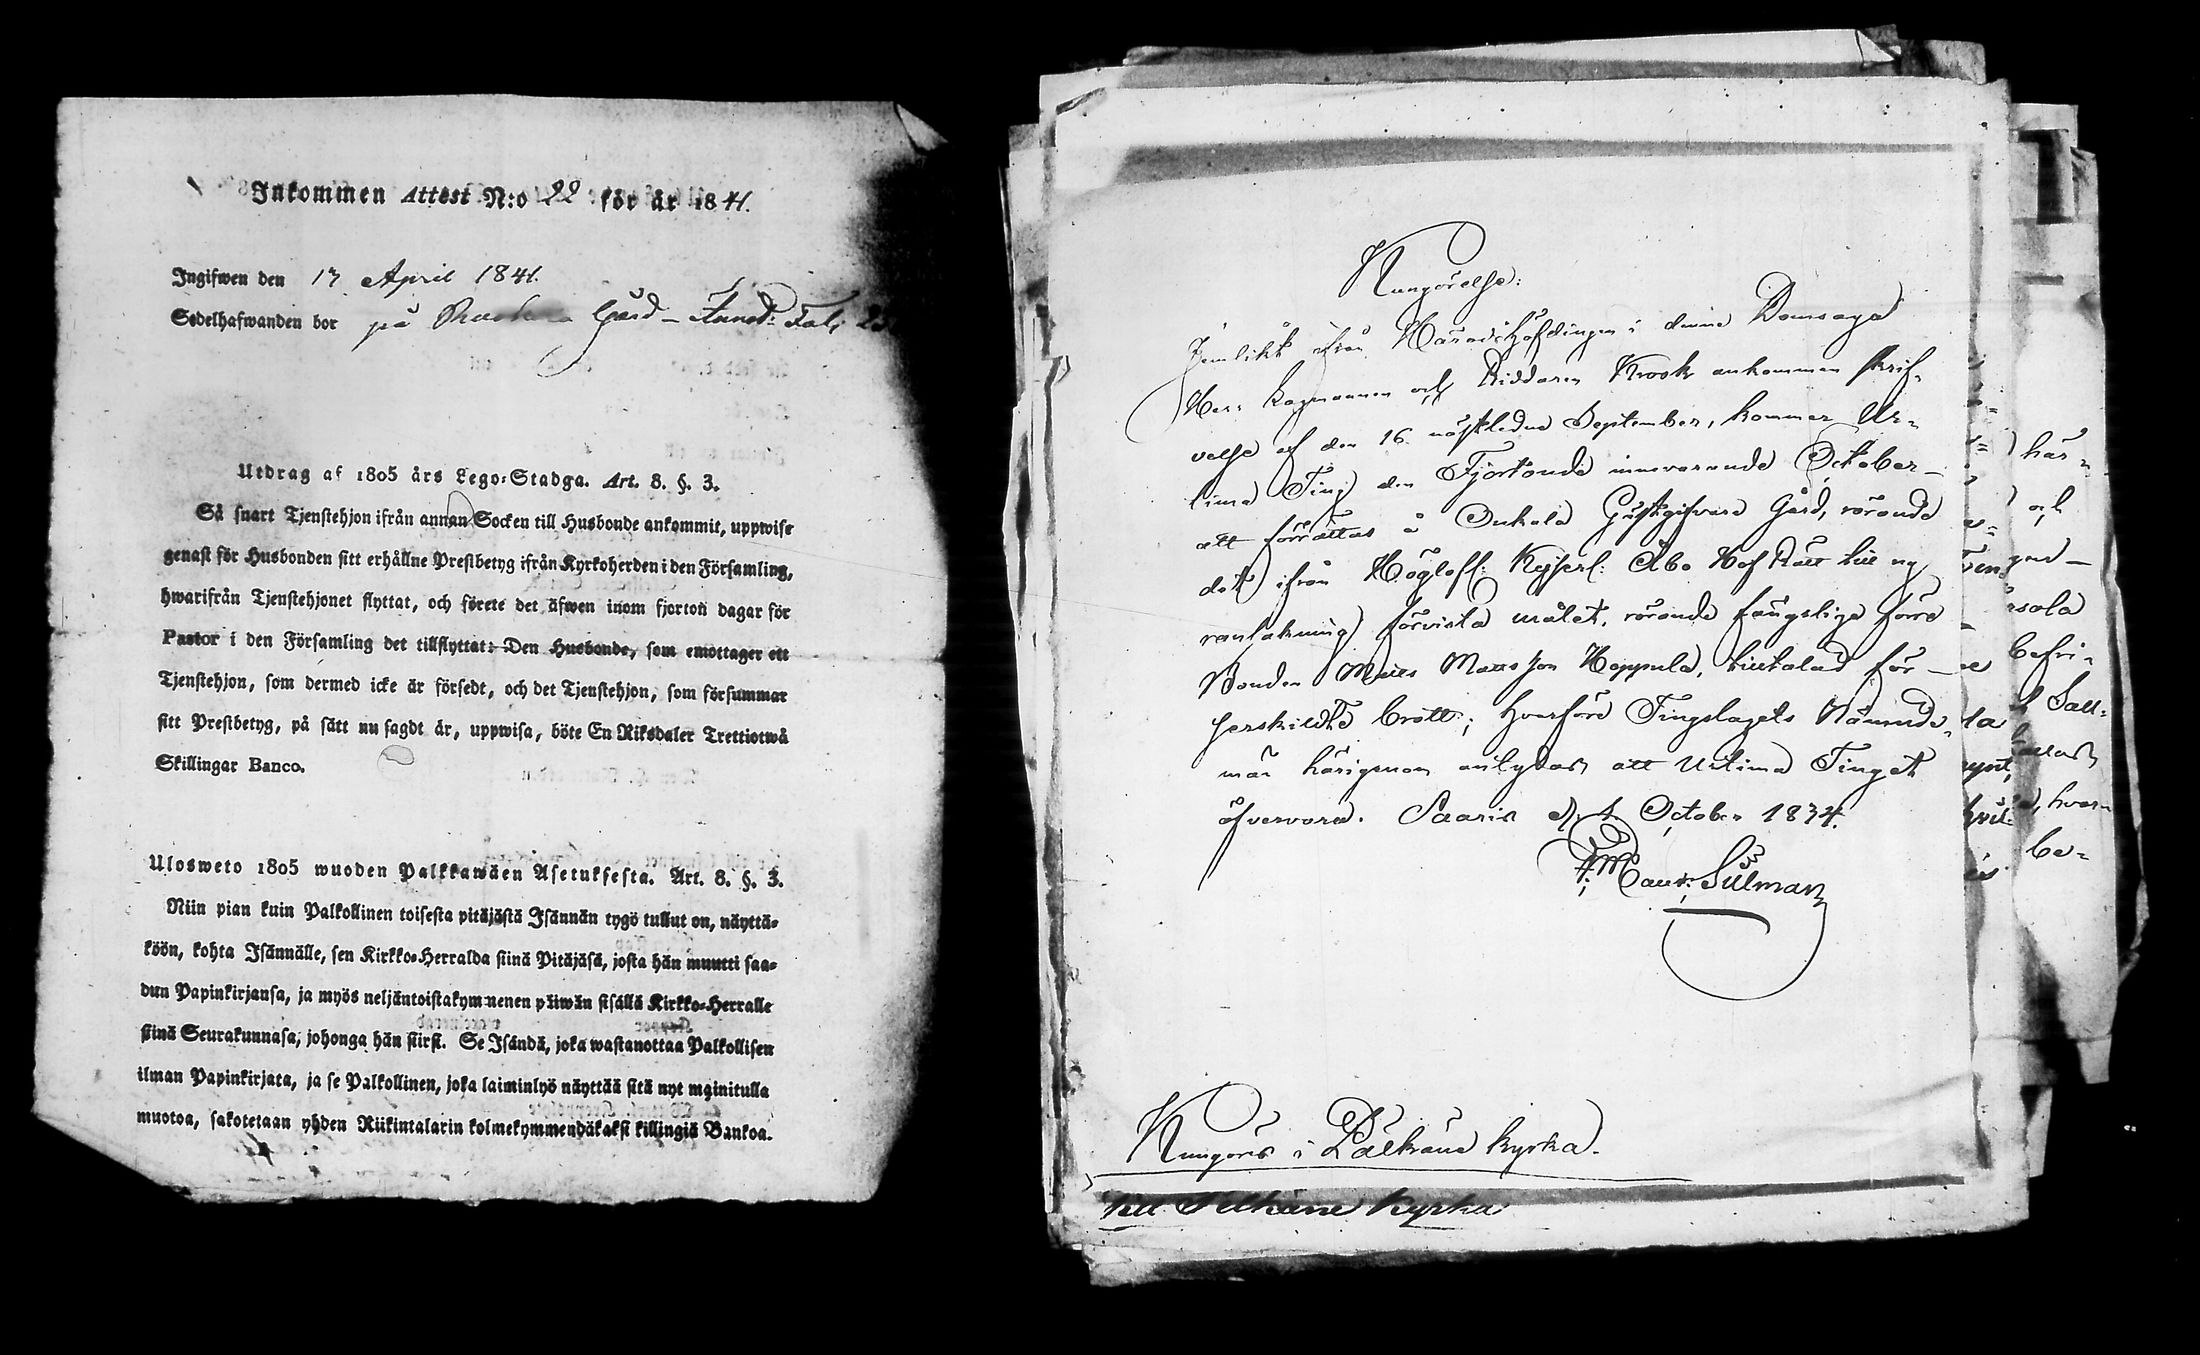 Inkommen Attest N:o 22 för år 1841.
Ingifwen den 17 April 1841.
Sedelhafwanden bor på Gård
Utdrag af 1805 års Lego-Stadga. Art. 8. §. 3.
Så snart Tjenstehjon ifrån annan Socken till Husbonde ankommit, uppwise
genast för Husbonden sitt erhållne Prestbetyg ifrån Kyrkoherden i den Församling,
hwarifrån Tjenstehjonet flyttat, och förete det äfwen inom fjorton dagar för
Pastor i den Församling det tillflyttat: Den Husbonde, som emottager ett
Tjenstehjon, som dermed icke är försedt, och det Tjenstehjon, som försummar
sitt Prestbetyg, på sätt nu sagdt är, uppwisa, böte En Riksdaler Trettiotwå
Skillingar Banco.
Ulosweto 1805 wuoden Palkkawäen Asetuksesta. Art. 8. §. 3.
Niin pian kuin Palkollinen toisesta pitäjästä Isännän tygö tullut on, näyttä-
köön, kohta Isännälle, sen Kirkko-Herralda siinä Pitäjäsä, josta hän muutti saa-
dun Papinkirjansa, ja myös neljäntoistakymmenen päiwän sisällä Kirkko-Herralle
siinä Seurakunnasa, johonga hän siirsi. Se Isändä, joka wastanottaa Palkollisen
ilman Papinkirjata, ja se Palkollinen, joka laiminlyö näyttää sitä nyt mainitulla
muotoa, sakotetaan yhden Riikintalarin kolmekymmendäkaksi killingiä Bankoa.
Kungörelse:
Jemlikt ifrån Häradshöfdingen i denna Domsaga
Herr Lagmannen och Riddaren Krook ankommen skrif-
velse af den 16 nästledne September, kommer Ur-
tima Ting den Fjortonde innevarande October
att förrättas å Onkala Gästgifvare Gård, rörande
det ifrån Höglofl: Kejserl: Åbo Hof Rätt till ny
ranlakning förvista målet, rörande fängslige förre
Bonden Matts Mattsson Heppula, tilltalad för
serskildte brott; hvarföre Tingslagets Nämnde-
män härigenom antydas att Urtima Tinget
öfvervara. Saaris d. 1 October 1834.
Silman
Kungörs i Pälkäne kyrka.
till Pelkäne Kyrka
här-
och
befri-
hvar-
be-